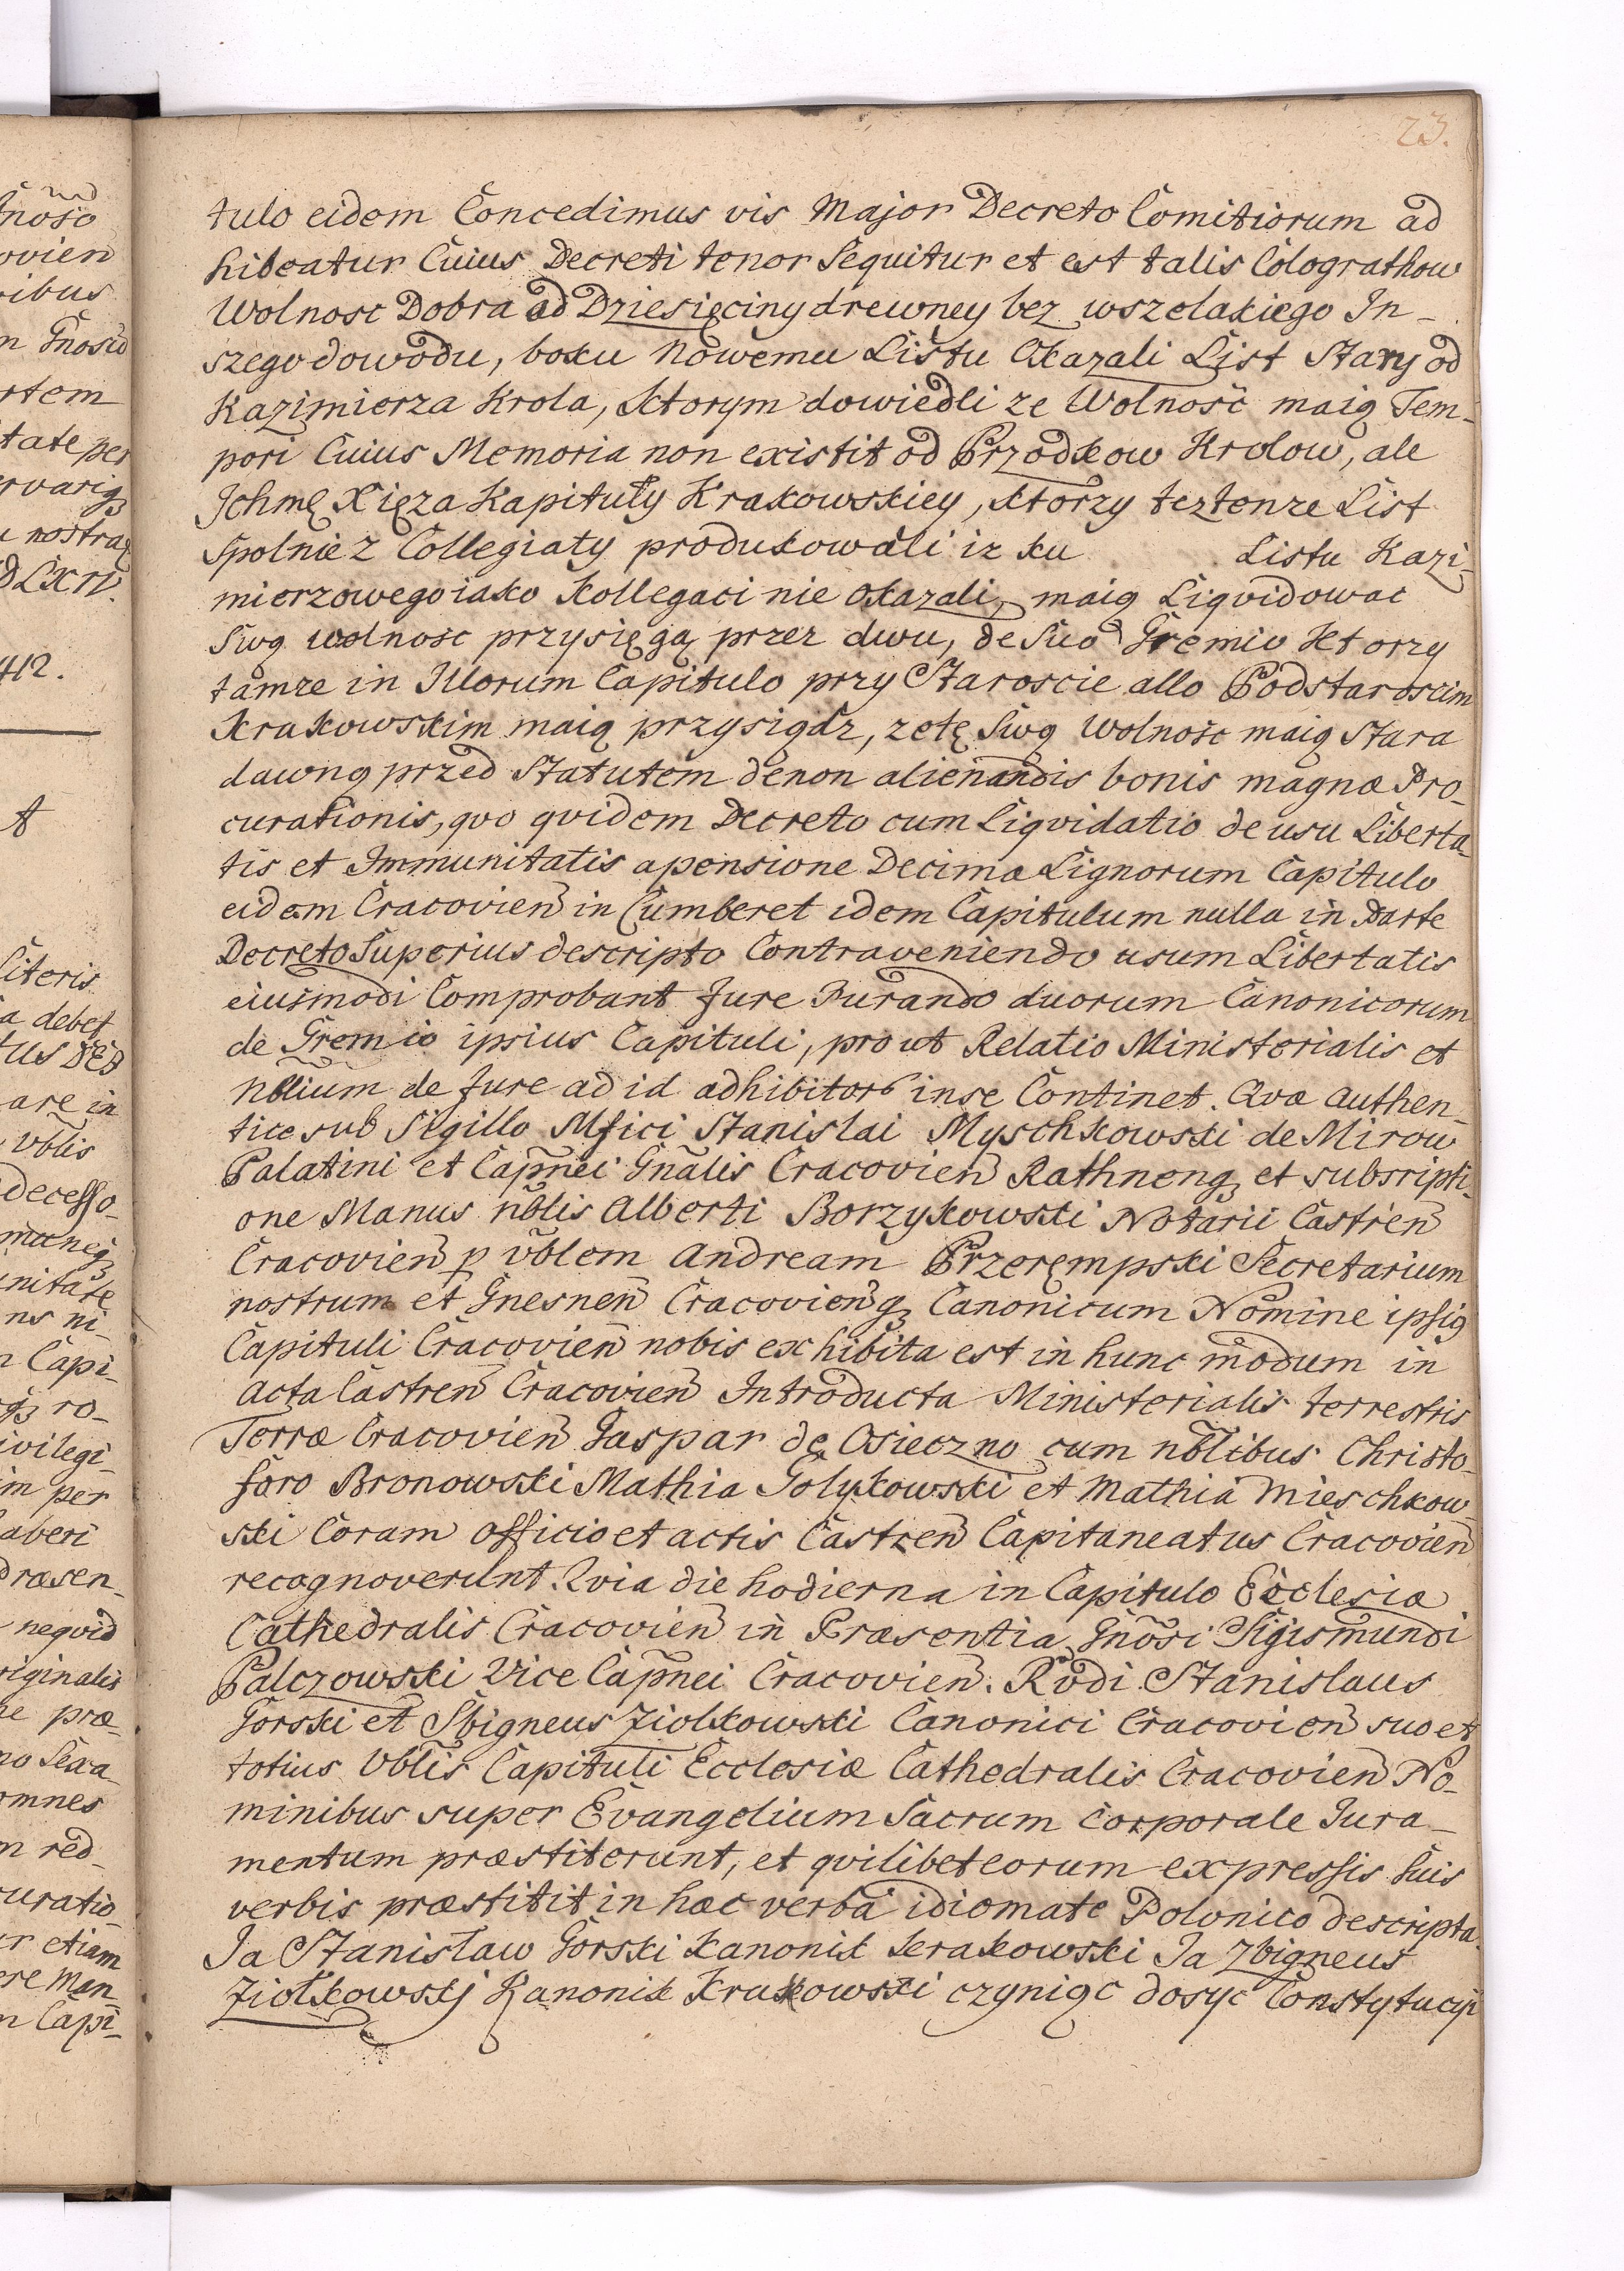 23.
tulo eidem Concedimus vis Major Decreto Comitiorum ad
hibeatur Cuius Decreti tenor Sequitur et est talis Colograthow
Wolnosc Dobra ad Dziesięciny drewney bez wszelakiego In_
szego dowodu, boku Nowemu Listu Okazali List Stary od
Kazimierza Krola, Ktorym dowiedli ze Wolnośc maią Tem_
pori Cuius Memoria non existit od Przodkow Krolow, ale
Jchmę Xięza Kapituły Krakowskiey, Ktorzy teztenze List
Spolnie z Collegiaty produkowali iz ku Listu Kazi_
mierzowego iako Kollegaci nie Okazali, maią Liqvidowac
Swą wolnosc przysięgą przez dwu, de Suo Gremio Ktorzy
tamze in Jllorum Capitulo przy Staroscie allo Podstaroscim
Krakowskim maią przysiądz, zetę Swą Wolnośc maią Stara
dawną przed Statutem denon alienandis bonis magnæ Pro_
curationis, qvo qvidem Decreto cum Liqvidatio de usu Liberta_
tis et Immunitatis apensione Decimæ Lignorum Capitulo
eidem Cracovien̄ in Cumberet idem Capitulum nulla in Parte
Decreto Superius descripto Contraveniendo usum Libertatis
eiusmodi Comprobant Jure Jurando duorum Canonicorum
de Gremio ipsius Capituli, prout Relatio Ministerialis et
Nblium de Jure ad id adhibitor inse Continet. Qvæ Authen_
tice sub Sigillo Mfici Stanislai Myschkowski de Mirow
Palatini et Capnei Gnalis Cracovien̄ Rathnenq et subsripti_
one Manus nblis Alberti Borzykowski Notarii Castren̄
Cracovien̄ p vblem Andream Przerempski Secretarium
nostrum et Gnesnen̄ Cracovienq Canonicum Nomine ipsiq
Capituli Cracovien̄ nobis exhibita est in hunc modum in
Acta Castren̄ Cracovien̄ Introducta Ministerialis terrestris
Terræ Cracovien̄ Gaspar de Osieczno cum nblibus Christo_
foro Bronowski Mathia Golykowski et Mathia Mieschkow_
ski Coram Officio et actis Castren̄ Capitaneatus Cracovien̄
recognoverunt. Qvia die hodierna in Capitulo Ecclesiæ
Cathedralis Cracovien̄ in Præsentia Gnosi Sigismundi
Palczowski Vice Capnei Cracovien̄. Rvdi Stanislaus
Gorski et Sbigneus Ziolkowski Canonici Cracovien̄ suo et
totius Vblis Capituli Ecclesiæ Cathedralis Cracovien̄ No_
minibus super Evangelium Sacrum Corporale Jura_
mentum præstiterunt, et qvilibet eorum expressis Suis
verbis præstitit in hæc verba idiomate Polonico descripta.
Ja Stanisław Gorski Kanonik Krakowski Ja Zbigneus
Ziołkowskj Kanonik Krakowski czyniąc dosyc Constytucyi